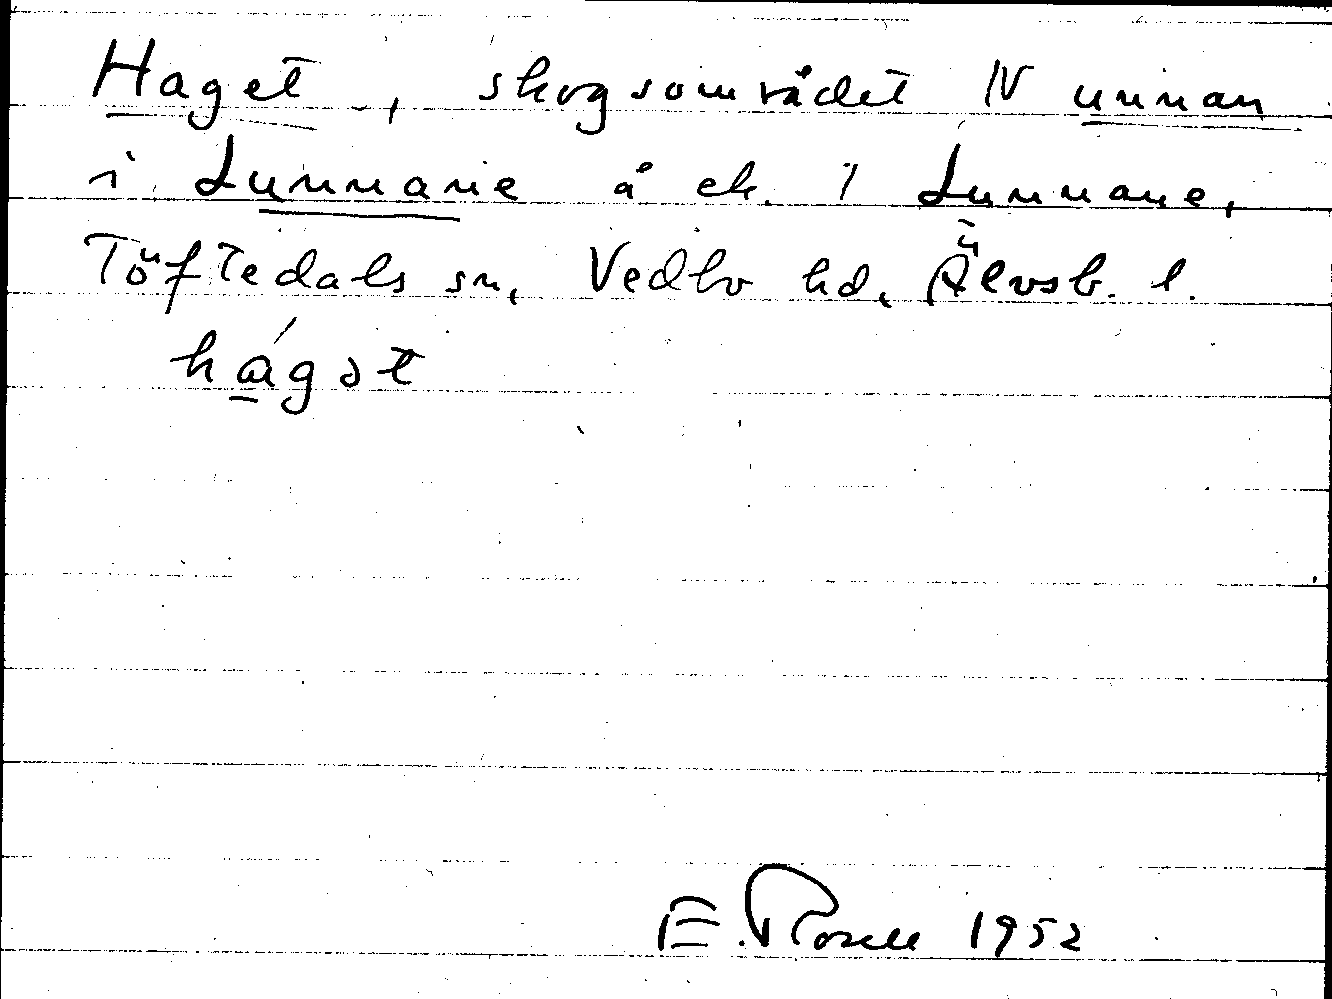 Haget, skogsområdet N unnan
i Lunnane å ek. 1 Lunnane,
Töftedals sn, Vedbo hd, Älvsb. l.
hágət
E. Rosell 1952